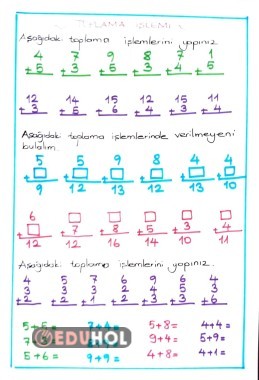 TOPLAMA İŞLEMİ
Aşağıdaki toplama işlemlerini yapınız
4 7 9 8 7 1
+5 +3 +3 +3 +4 +5
12 14 15 12 15 11
+3 +5 +6 +4 +3 +4
Aşağıdaki toplama işlemlerinde verilmeyeni
bulalım.
5 5 9 8 4 4
+□ +□ +□ +□ +□ +□
9 12 13 12 12 10
6 □ □ □ □ □
+□ +7 +8 +5 +3 +4
12 12 16 14 10 11
Aşağıdaki toplama işlemlerini yapınız.
4 5 7 6 9 6 4
3 3 3 2 4 5 3
+2 +2 +1 +2 +3 +3 +6
5+5= 7+4= 5+8= 4+4=
EDUHOL
9+4= 5+9=
5+6= 9+9= 4+8= 4+1=